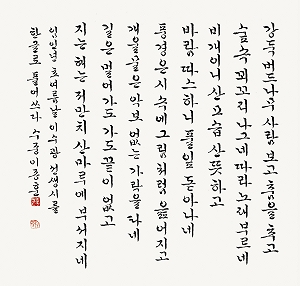 강둑 버드나무 사람 보고 춤을 추고
숲속 꾀꼬리 나그네 따라 노래 부르네
비 개이니 산 모습 산뜻하고
바람 따스하니 풀잎 돋아나네
풍경은 시 속에 그림처럼 옮어지고
개울물은 악보 없는 가락을 타네
길은 멀어 가도 가도 끝이 없고
지는 해는 저만치 산마루에 부서지네
임인년 초여름날 이수광 선생시를
한글로 풀어쓰다 수중 이종훈